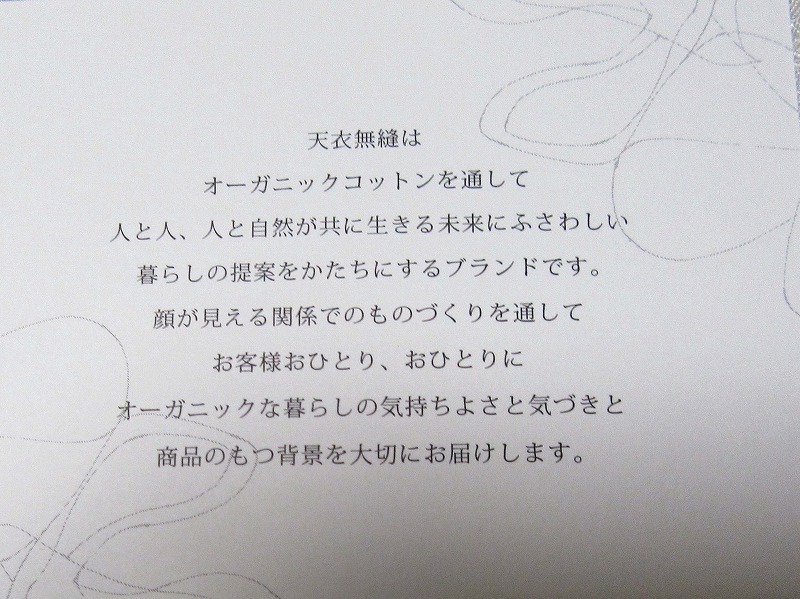 天衣無縫は
オーガニックコットンを通して
人と人、人と自然が共に生きる未来にふさわしい
暮らしの提案をかたちにするブランドです。
顔が見える関係でのものづくりを通して
お客様おひとり、おひとりに
オーガニックな暮らしの気持ちよさと気づきと
商品のもつ背景を大切にお届けします。